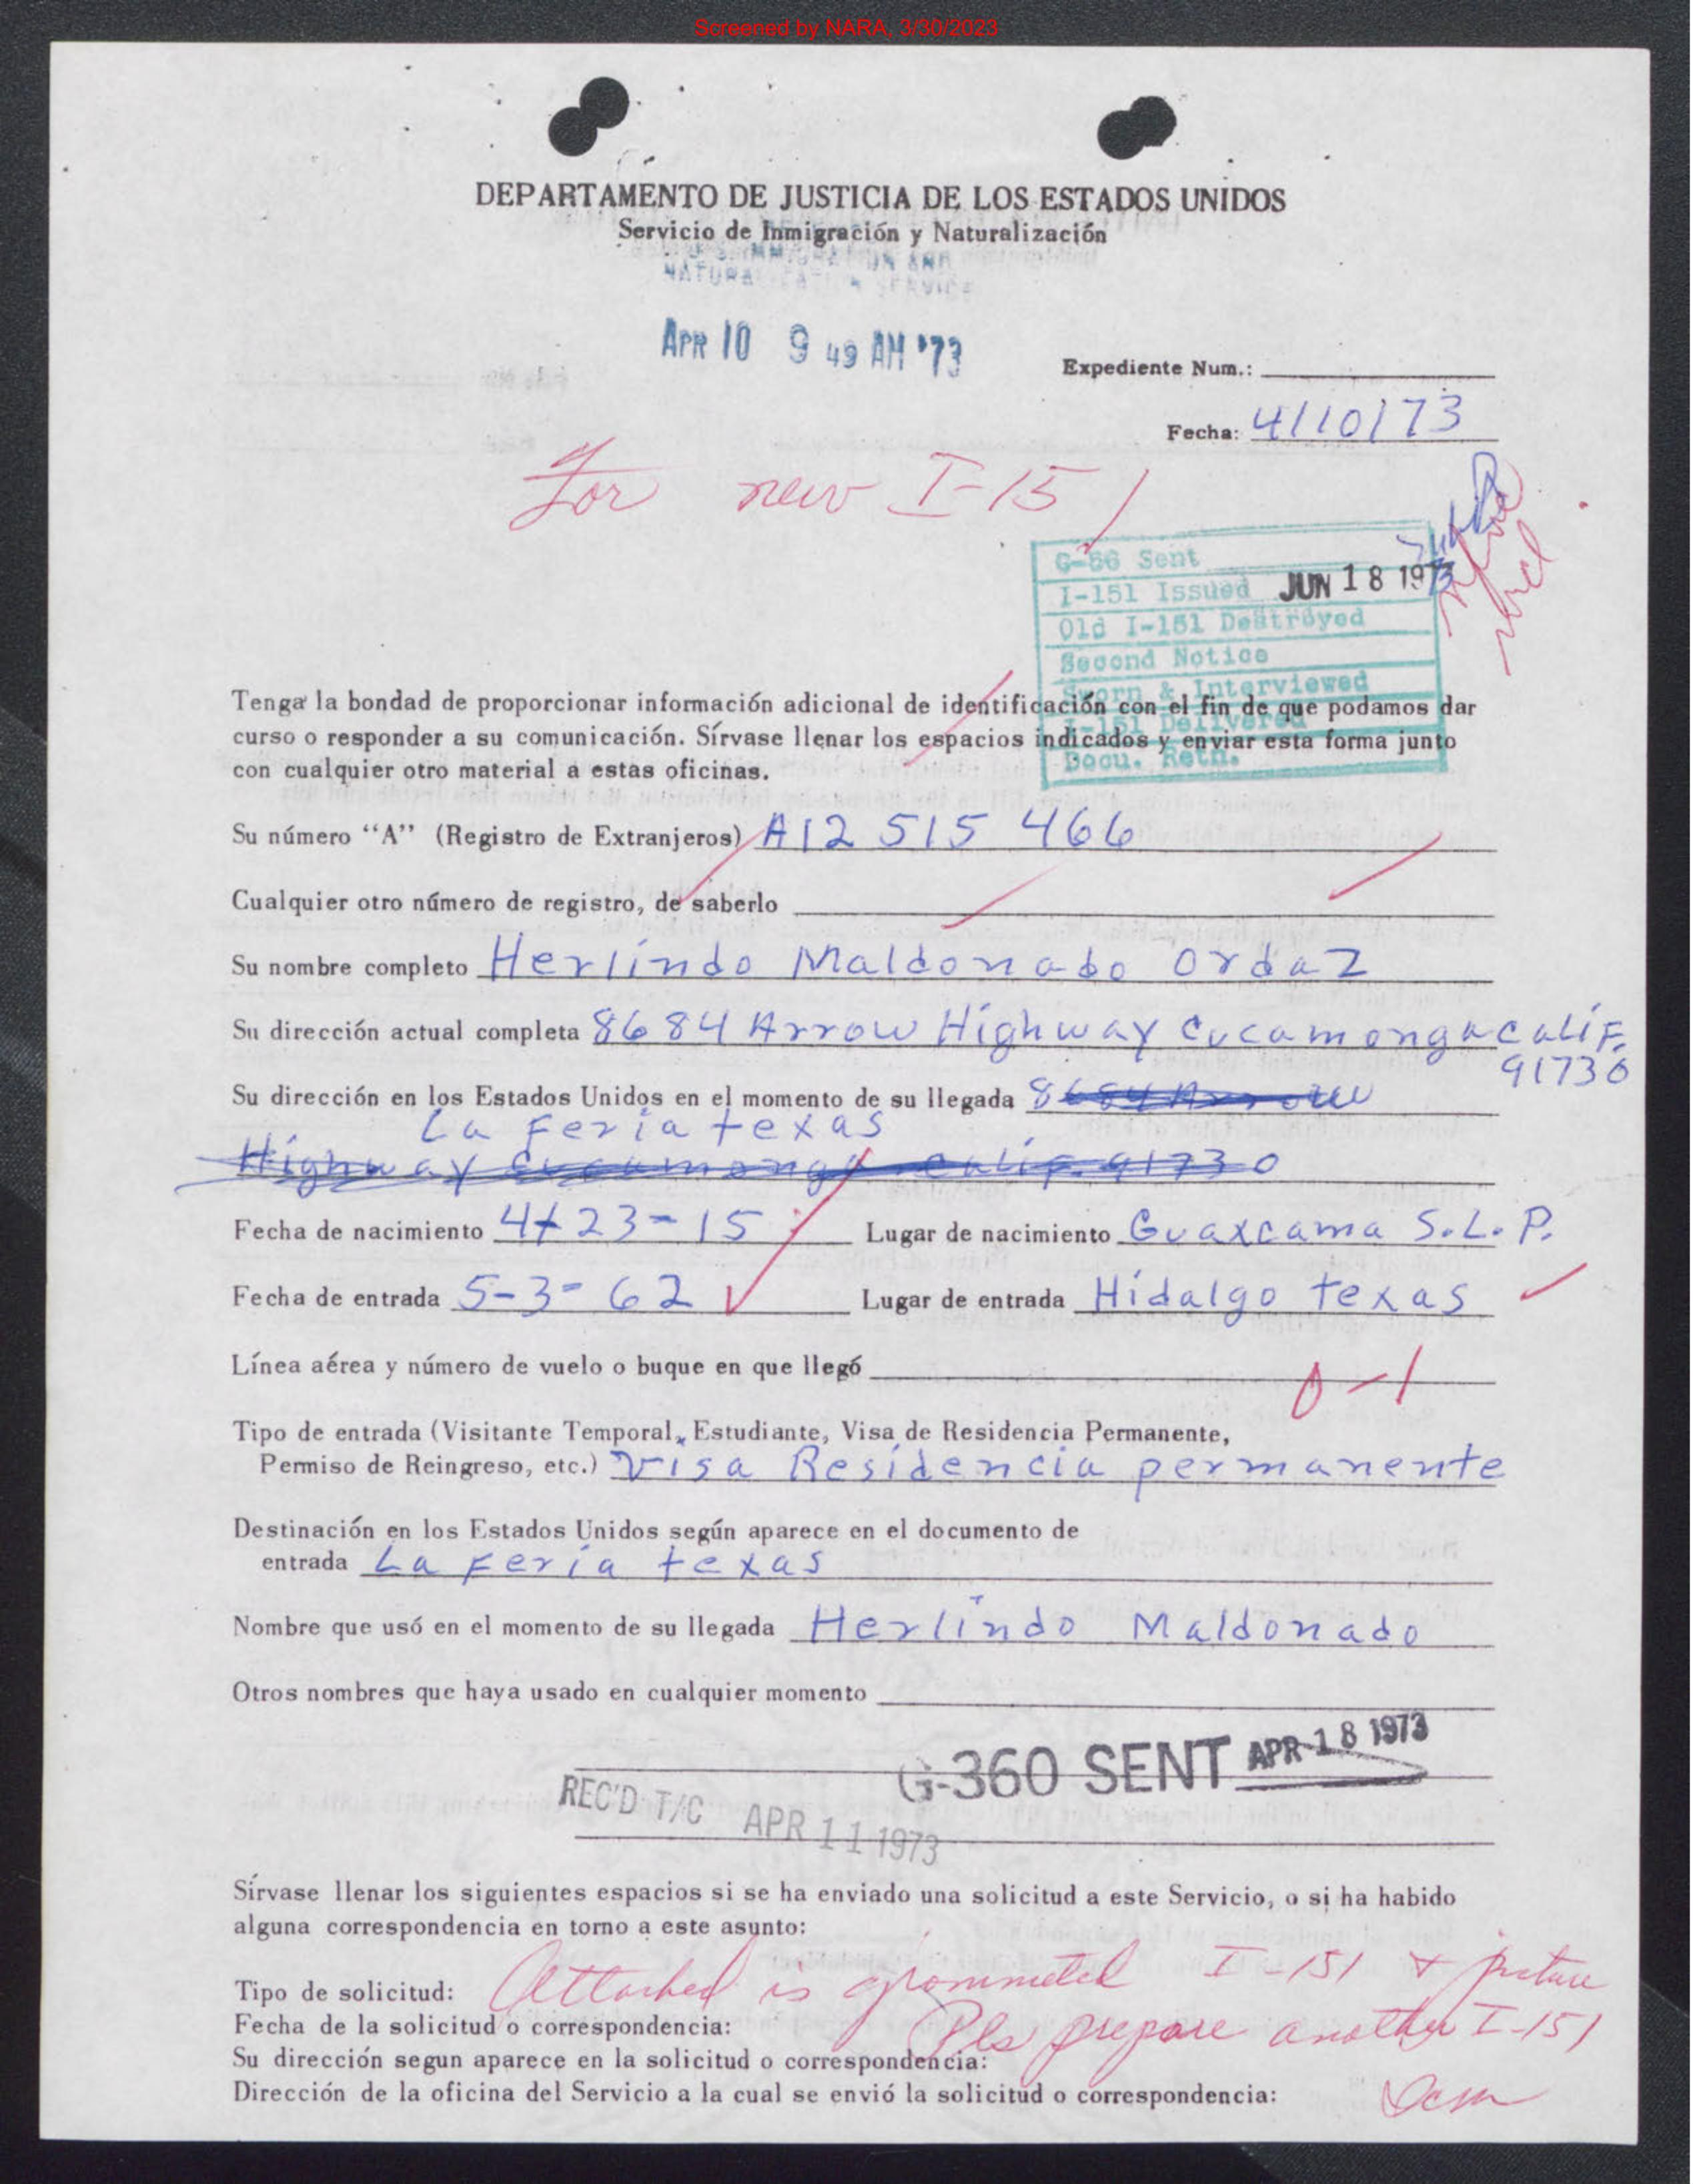 Screened by NARA, 3/30/2023
DEPARTAMENTO DE JUSTICIA DE LOS ESTADOS UNIDOS
Servicio de Inmigración y Naturalización
U.S. IMMIGRATION AND
NATURALIZATION SERVICE
APR 10 9 49 AM '73
Expediente Num.:
Fecha: 4/10/73
For new I-151
G-56 Sent
I-151 Issued JUN 18 1973
Old I-151 Destroyed
Second Notice
Sworn & Interviewed
I-151 Delivered
Docu. Retn.
Tenga la bondad de proporcionar información adicional de identificación con el fin de que podamos dar
curso o responder a su comunicación. Sírvase llenar los espacios indicados y enviar esta forma junto
con cualquier otro material a estas oficinas.
Su número “A” (Registro de Extranjeros) A12 515 466
Cualquier otro número de registro, de saberlo
Su nombre completo Herlindo Maldonado Ordaz
Su dirección actual completa 8684 Arrow Highway Cucamonga calif.
91730
Su dirección en los Estados Unidos en el momento de su llegada 8684 Arrow
La Feria texas
Highway Cucamonga calif. 91730
Fecha de nacimiento 4-23-15 Lugar de nacimiento Guaxcama S.L.P.
Fecha de entrada 5-3-62 Lugar de entrada Hidalgo texas
Línea aérea y número de vuelo o buque en que llegó
0-1
Tipo de entrada (Visitante Temporal, Estudiante, Visa de Residencia Permanente,
Permiso de Reingreso, etc.) Visa Residencia permanente
Destinación en los Estados Unidos según aparece en el documento de
entrada La Feria texas
Nombre que usó en el momento de su llegada Herlindo Maldonado
Otros nombres que haya usado en cualquier momento
G-360 SENT APR 18 1973
REC'D T/C APR 11 1973
Sírvase llenar los siguientes espacios si se ha enviado una solicitud a este Servicio, o si ha habido
alguna correspondencia en torno a este asunto:
Tipo de solicitud: Attached is grommeted I-151 & picture
Fecha de la solicitud o correspondencia: Pls prepare another I-151
Su dirección segun aparece en la solicitud o correspondencia:
Dirección de la oficina del Servicio a la cual se envió la solicitud o correspondencia: